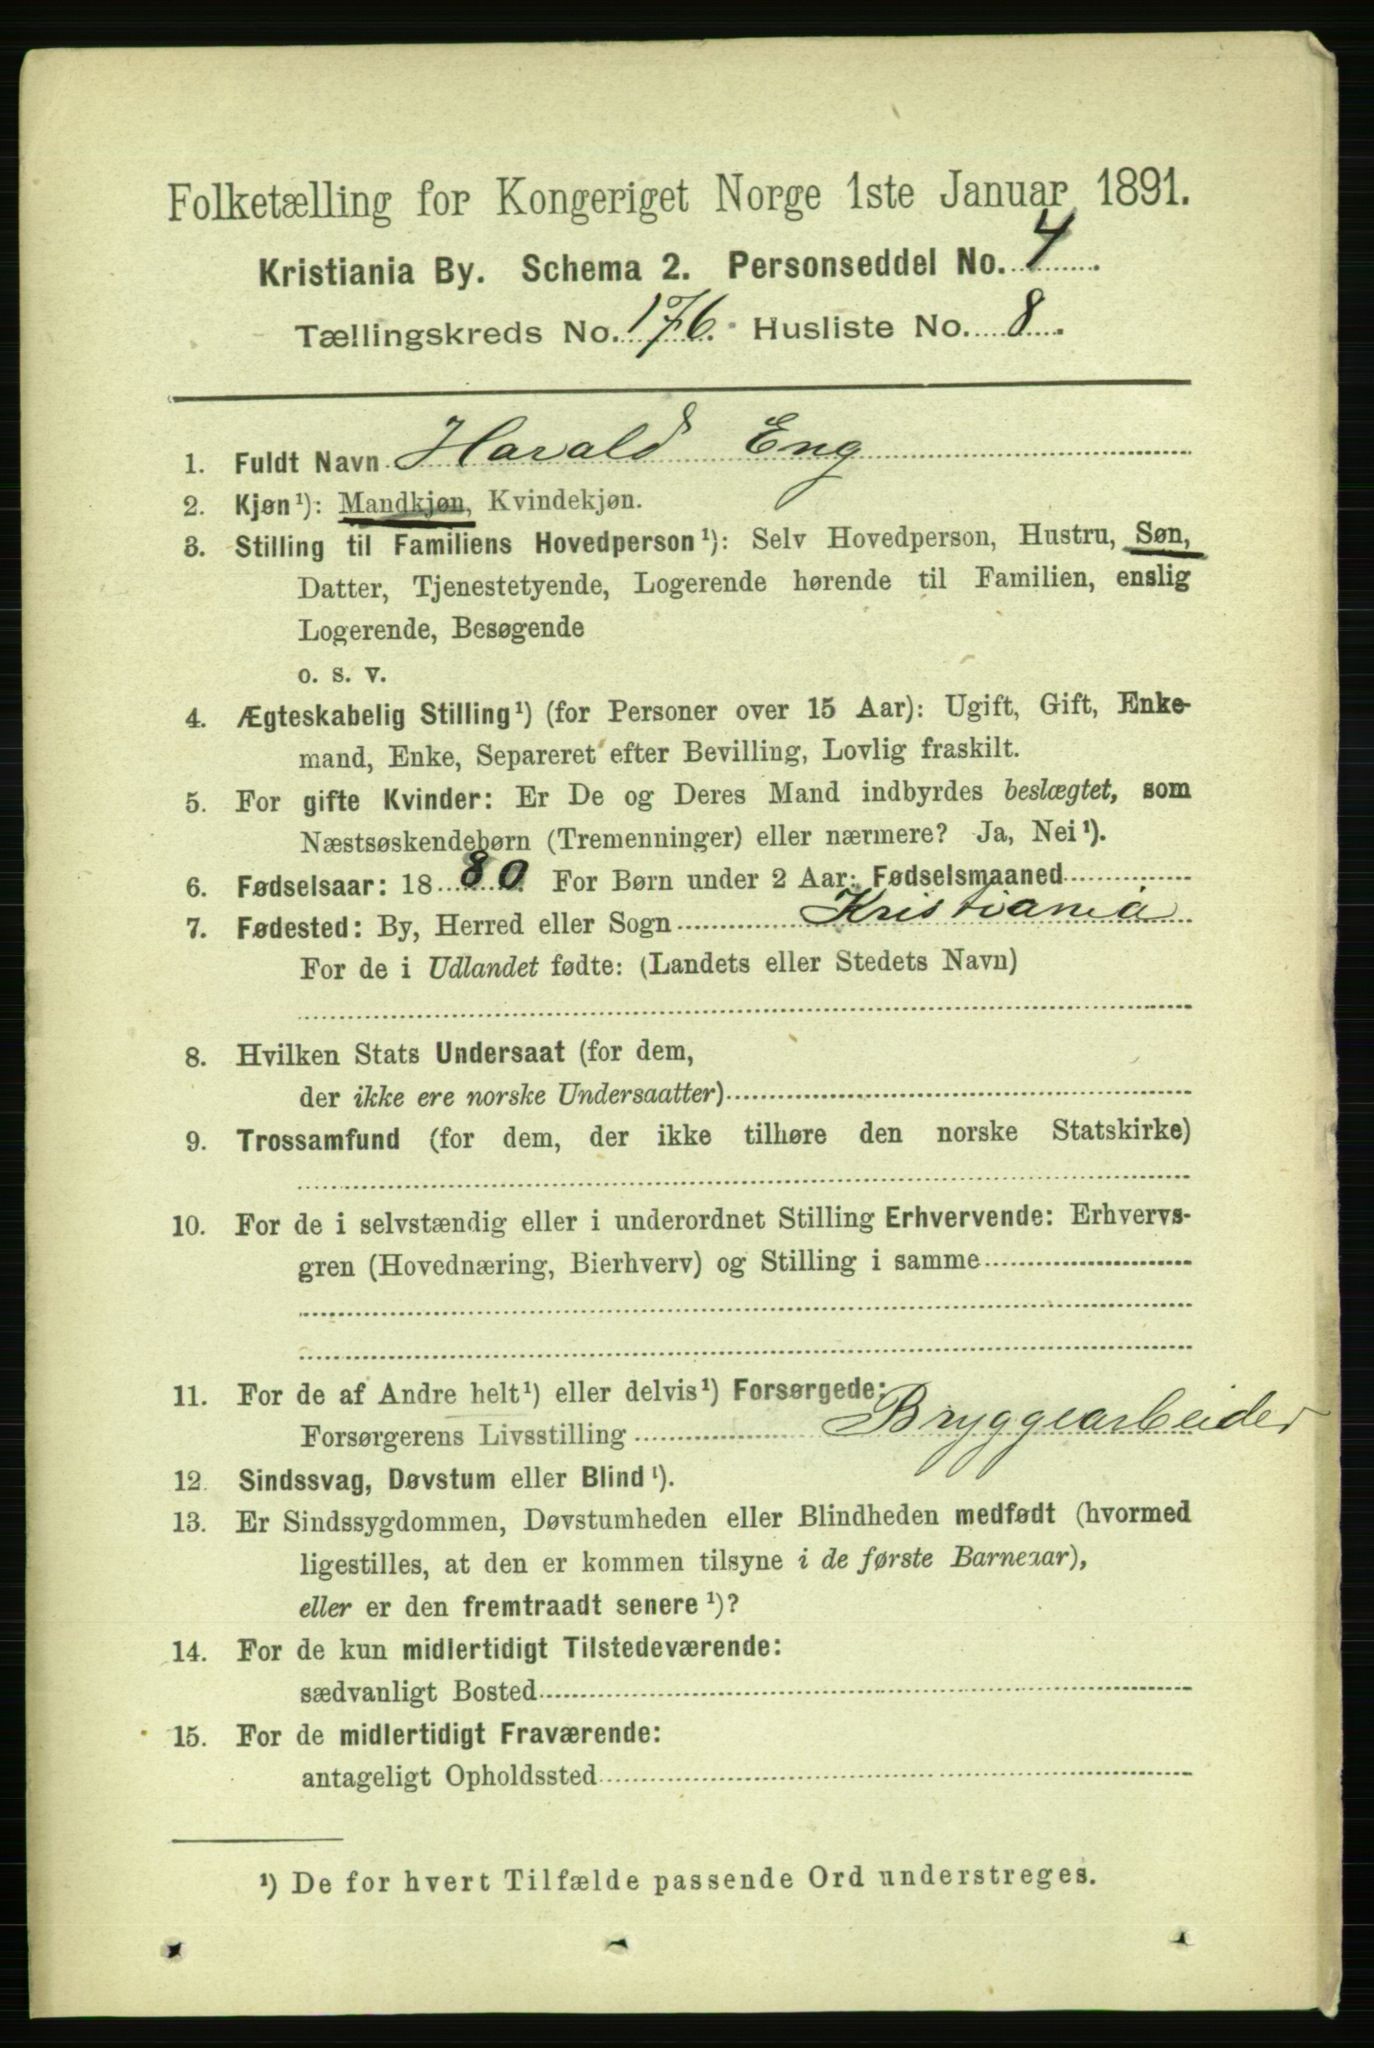 Folketælling for Kongeriget Norge 1ste Januar 1891.
Kristiania By. Schema 2. Personseddel No. 4
Tællingskreds No. 176. Husliste No. 8.
1. Fuldt Navn Harald Eng
2. Kjøn¹): Mandkjøn, Kvindekjøn.
3. Stilling til Familiens Hovedperson¹): Selv Hovedperson, Hustru, Søn,
Datter, Tjenestetyende, Logerende hørende til Familien, enslig
Logerende, Besøgende
o. s. v.
4. Ægteskabelig Stilling¹) (for Personer over 15 Aar): Ugift, Gift, Enke-
mand, Enke, Separeret efter Bevilling, Lovlig fraskilt.
5. For gifte Kvinder: Er De og Deres Mand indbyrdes beslægtet, som
Næstsøskendebørn (Tremenninger) eller nærmere? Ja, Nei¹).
6. Fødselsaar: 1880. For Børn under 2 Aar: Fødselsmaaned
7. Fødested: By, Herred eller Sogn Kristiania
For de i Udlandet fødte: (Landets eller Stedets Navn)
8. Hvilken Stats Undersaat (for dem,
der ikke ere norske Undersaatter)
9. Trossamfund (for dem, der ikke tilhøre den norske Statskirke)
10. For de i selvstændig eller i underordnet Stilling Erhvervende: Erhvervs-
gren (Hovednæring, Bierhverv) og Stilling i samme
11. For de af Andre helt¹) eller delvis¹) Forsørgede:
Forsørgerens Livsstilling Bryggearbeider
12. Sindssvag, Døvstum eller Blind¹).
13. Er Sindssygdommen, Døvstumheden eller Blindheden medfødt (hvormed
ligestilles, at den er kommen tilsyne i de første Barneaar),
eller er den fremtraadt senere¹)?
14. For de kun midlertidigt Tilstedeværende:
sædvanligt Bosted
15. For de midlertidigt Fraværende:
antageligt Opholdssted
¹) De for hvert Tilfælde passende Ord understreges.